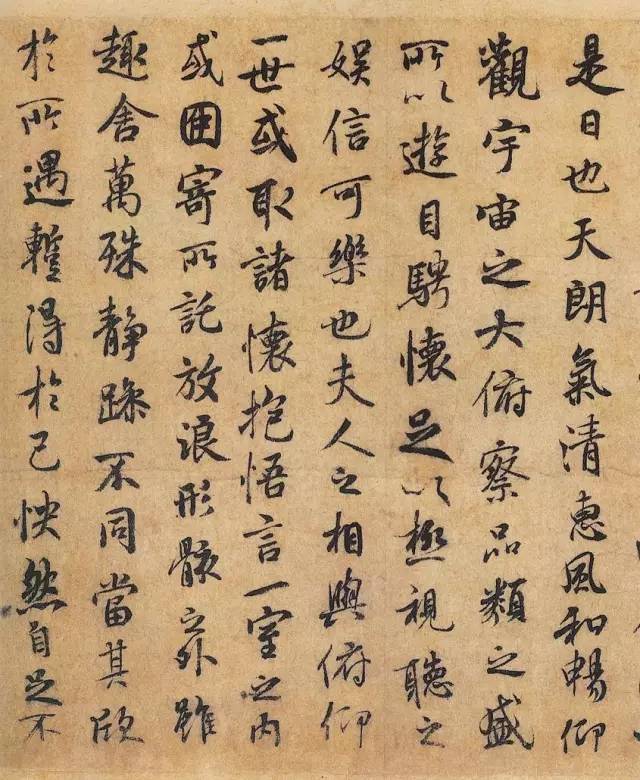 是日也天朗氣清惠風和暢仰
觀宇宙之大俯察品類之盛
所以遊目騁懷足以極視聽之
娛信可樂也夫人之相與俯仰
一世或取諸懷抱悟言一室之內
或因寄所託放浪形骸之外雖
趣舍萬殊靜躁不同當其欣
於所遇蹔得於己怏然自足不